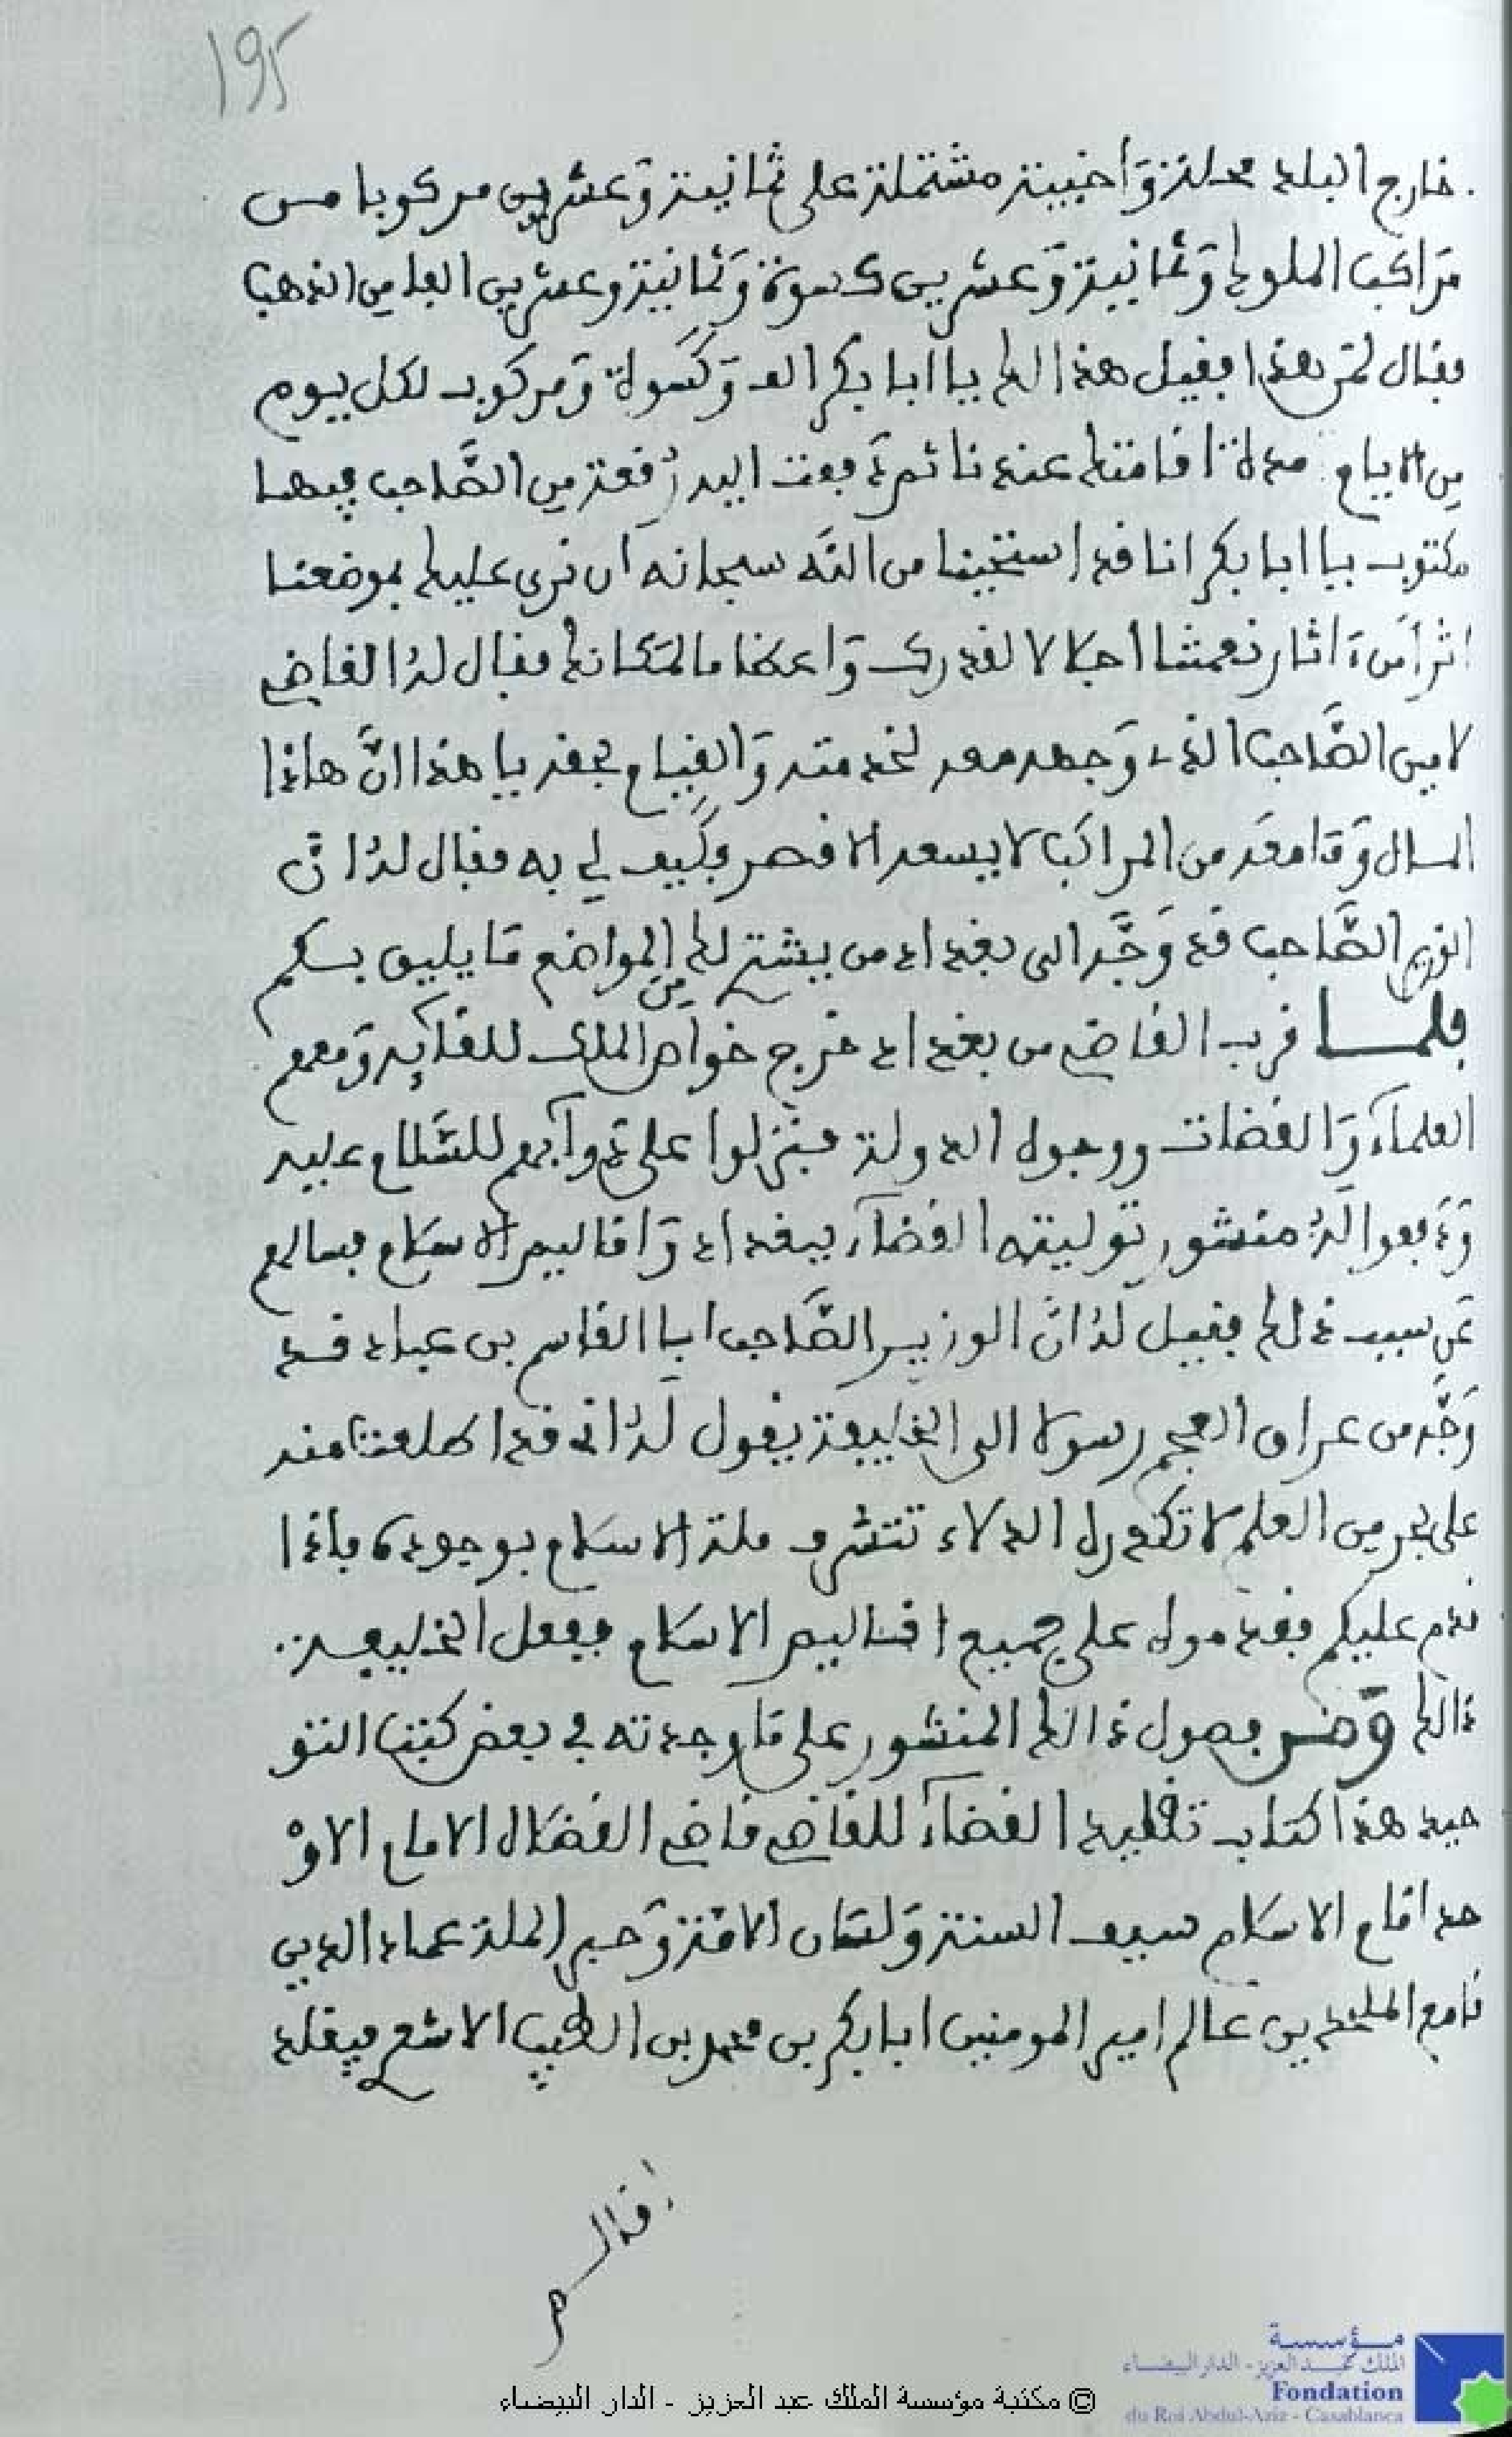 195
خارج البلد محلة وأخبية مشتملة على ثمانية وعشرين مركوبا من
مراكب الملوك وثمانية وعشرين كسوة وثمانية وعشرين الفا من الذهب
فقال لمن هذا فقيل هذا لك يا ابا بكر الف وكسوة ومركوب لكل يوم
من الايام مدة اقامتك عندنا ثم دفعت اليه رقعة من الصاحب فيها
مكتوب يا ابا بكر انا قد استحيينا من الله سبحانه ان نرى عليك بموضعنا
اثرا من ءاثار نعمتنا اجلالا لقدرك واعظاما لمكانك فقال له القاضي
لامين الصاحب الذي وجهه معه لخدمته والقيام بحقه يا هذا ان هاذا
المال وما معه من المراكب لا يسعه الا قصر وكيف لي به فقال له ان
الوزير الصاحب قد وجه الى بغداد من يشتر لك من المواضع ما يليق بسكم
فلمـا قرب القاضي من بغداد خرج خواص الملك للقايه ومعهم
العلماء والقضات ووجوه الدولة فنزلوا على دوابهم للسلام عليه
ودفعوا له منشور توليته القضاء ببغداد واقاليم الاسلام فسالهم
عن سبب ذلك فقيل له ان الوزير الصاحب ابا القاسم بن عباد قد
وجه من عراق العجم رسولا الى الخليفة يقول له انى قد اطلعت منه
على بحر من العلم لا تكدره الدلاء تتشرف ملة الاسلام بوجوده فاذا
قدم عليكم فقدموه على جميع اقاليم الاسلام ففعل الخليفة
ذالك ونص فصول ذالك المنشور على ما وجدته في بعض كتب التو
حيد هذا كتاب تقليد القضاء للقاضي قاضي القضاة الامام الاو
حد امام الاسلام سيف السنة ولسان الامة وحبر الملة عماد الدين
قامع الملحدين عالم امير المومنين ابا بكر بن محمد بن الطيب الاشعر فيقلد
اقاله
مؤسسة
الملك عبد العزيز - الدار البيضاء
Fondation
du Roi Abdul-Aziz - Casablanca
© مكتبة مؤسسة الملك عبد العزيز - الدار البيضاء